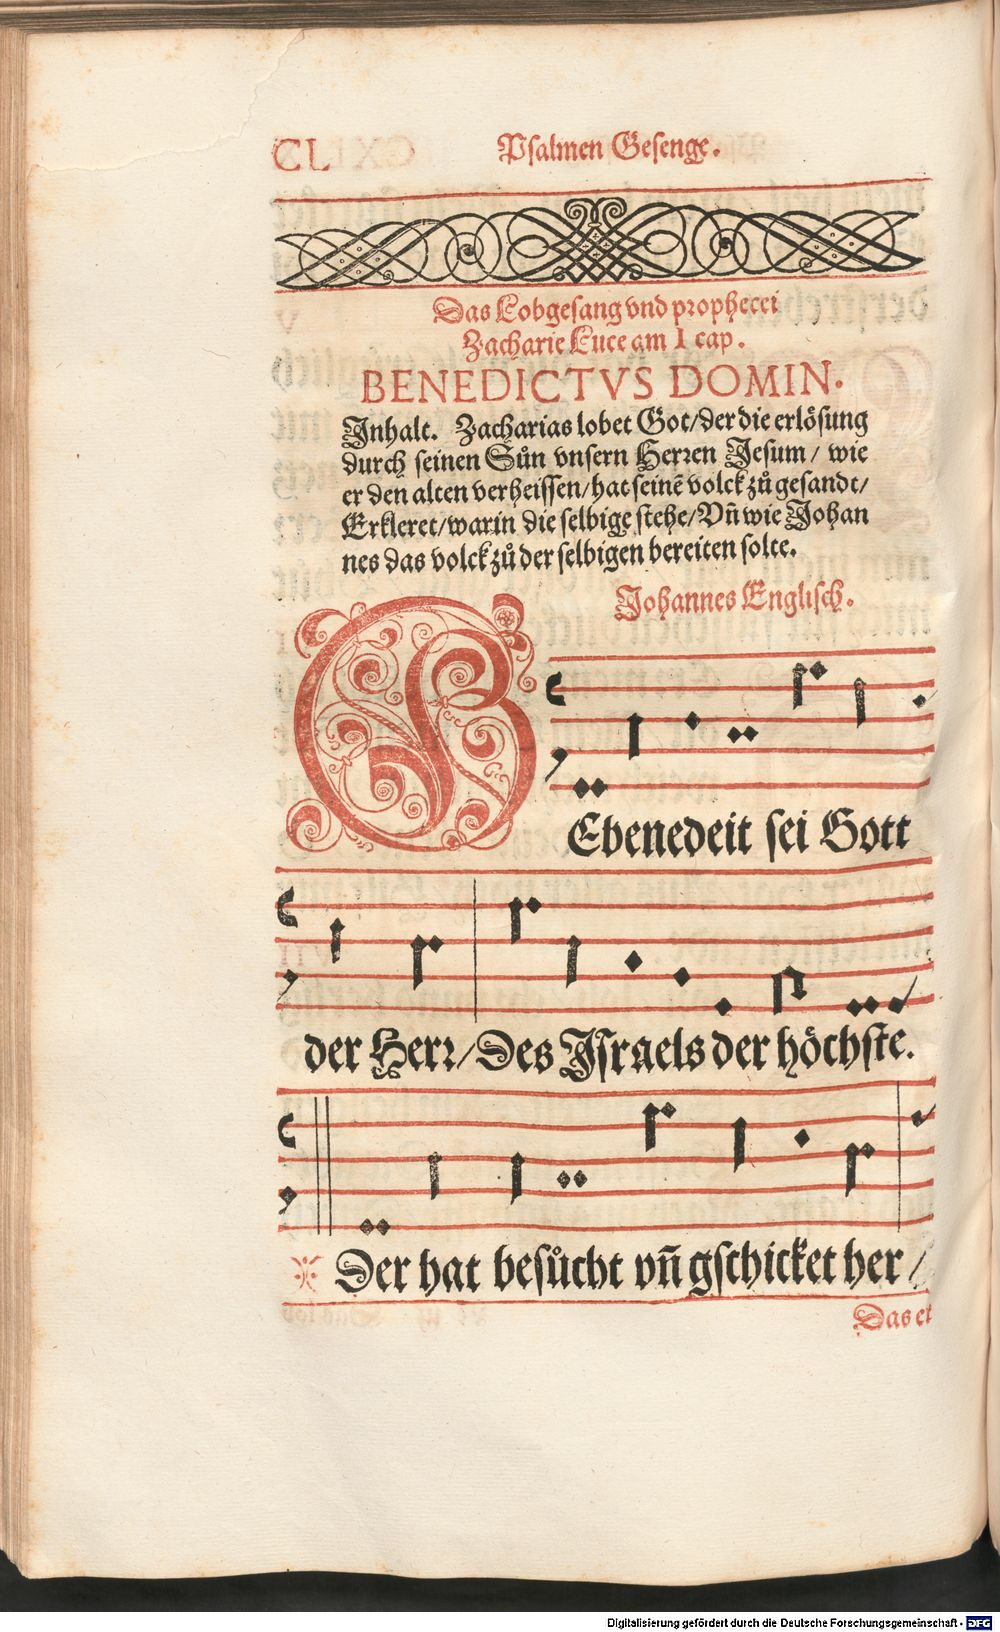 CL
Psalmen Gesenge.
Das Lobgesang vnd prophecei
Zacharie Luce am I cap.
BENEDICTVS DOMIN.
Inhalt. Zacharias lobet Got/der die erlösung
durch seinen Sůn vnsern Herren Jesum/ wie
er den alten verheissen/hat seinē volck zů gesandt/
Erkleret/warin die selbige stehe/Vñ wie Johan
nes das volck zů der selbigen bereiten solte.
Johannes Englisch.
GEbenedeit sei Gott
der Herr/Des Jsraels der höchste.
Der hat besůcht vñ gschicket her/
Das er
Digitalisierung gefördert durch die Deutsche Forschungsgemeinschaft - DFG